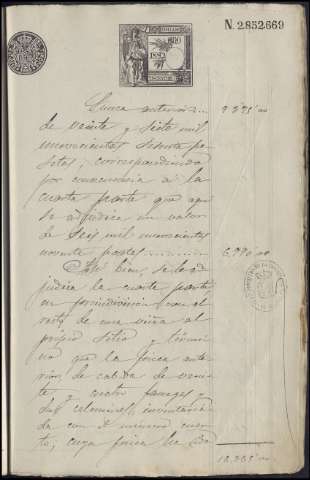 N. 2.852.669
Suma anterior 9.275'00
de veinte y siete mil
novecientas sesenta pe-
setas; correspondiendo
por consecuencia a la
cuarta parte que aqui
se adjudica un valor
de seis mil novecientas
noventa pesetas 6.990'00
Así bien, se le ad
judica la cuarta parte
en proindivisión con el
resto de una viña al
propio sitio y térmi
no que la finca ante
rior, de cabida de vein
te y cuatro fanegas y
dos celemines, inventaria
da con el número cuar
to; cuya finca ha
16.265'00